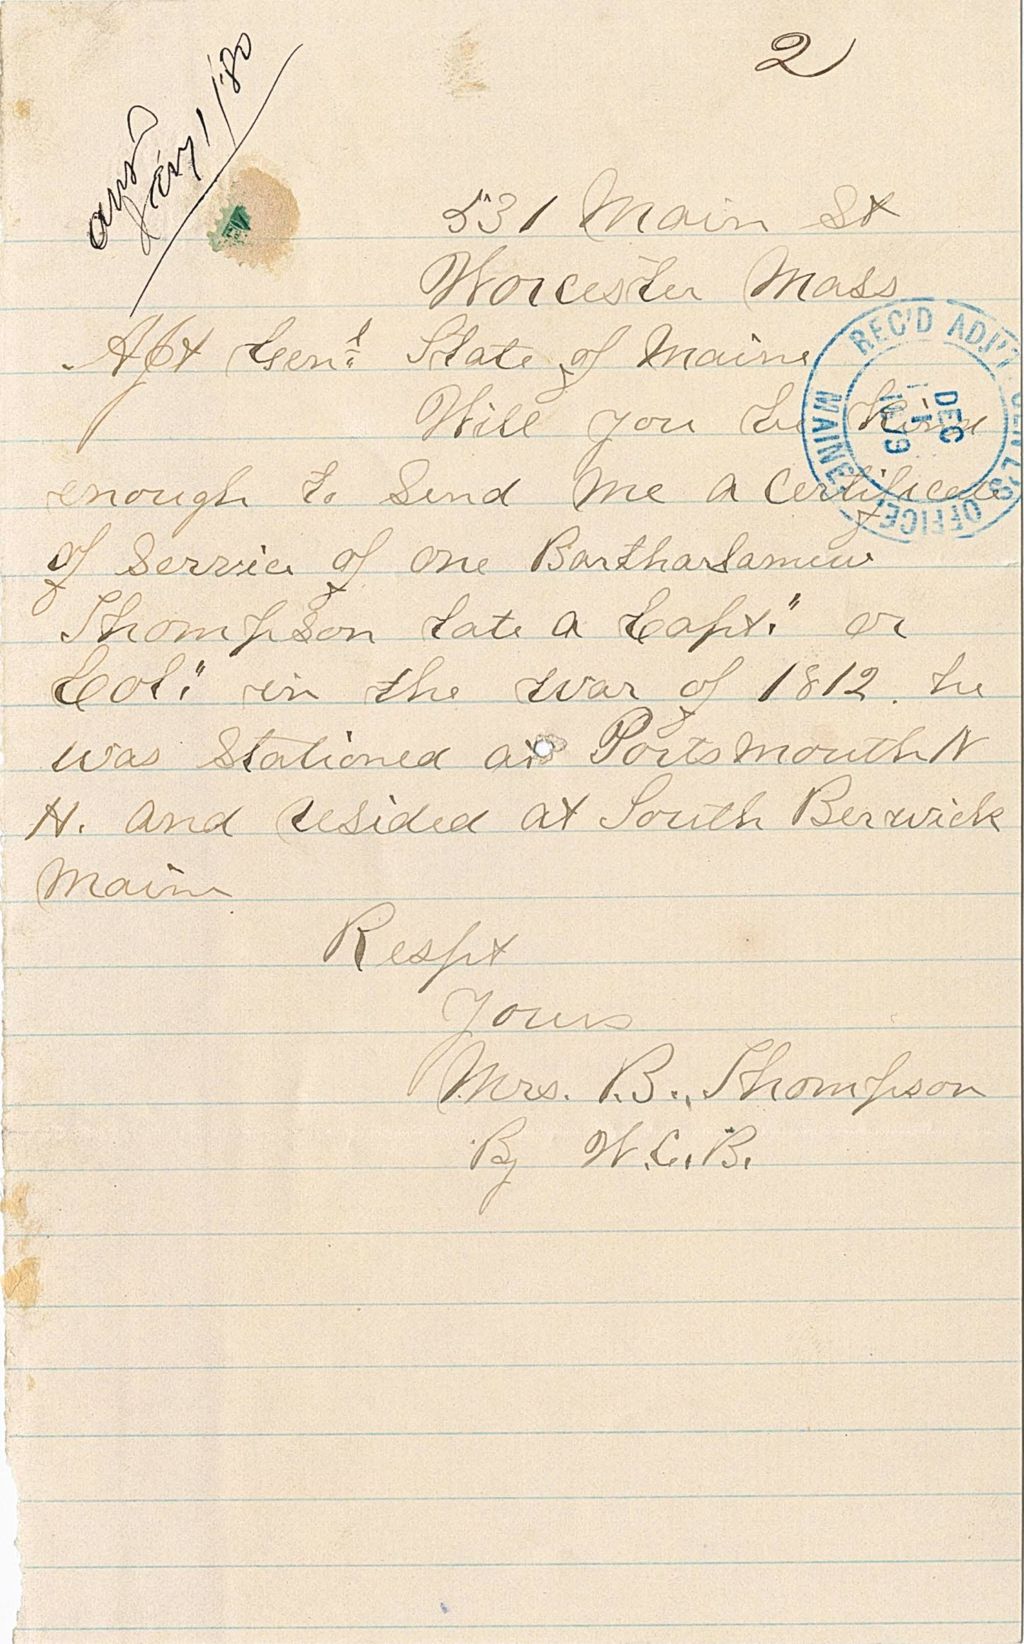 2
ansd
Jany 1/80
531 Main St
Worcester Mass
Ajt Genl State of Maine
Will you be kind
enough to Send Me a Certificate
of Service of one Bartharlamew
Thompson late a Capt." or
Col." in the war of 1812. he
was Stationed at Portsmouth N
H. and resided at South Berwick
Maine
Respt
Yours
Mrs. B. Thompson
By W.C.B.
REC'D ADJ'T. GEN'L'S OFFICE, MAINE.
DEC
1879